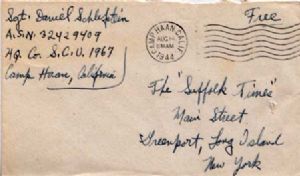 Sgt. Daniel Schlefstin
A.S.N. 32429409
Hq. Co. S.C.U. 1967
Camp Haan, California
CAMP HAAN, CALIF.
AUG
AM
1944
Free
The "Suffolk Times"
Main Street
Greenport, Long Island
New York